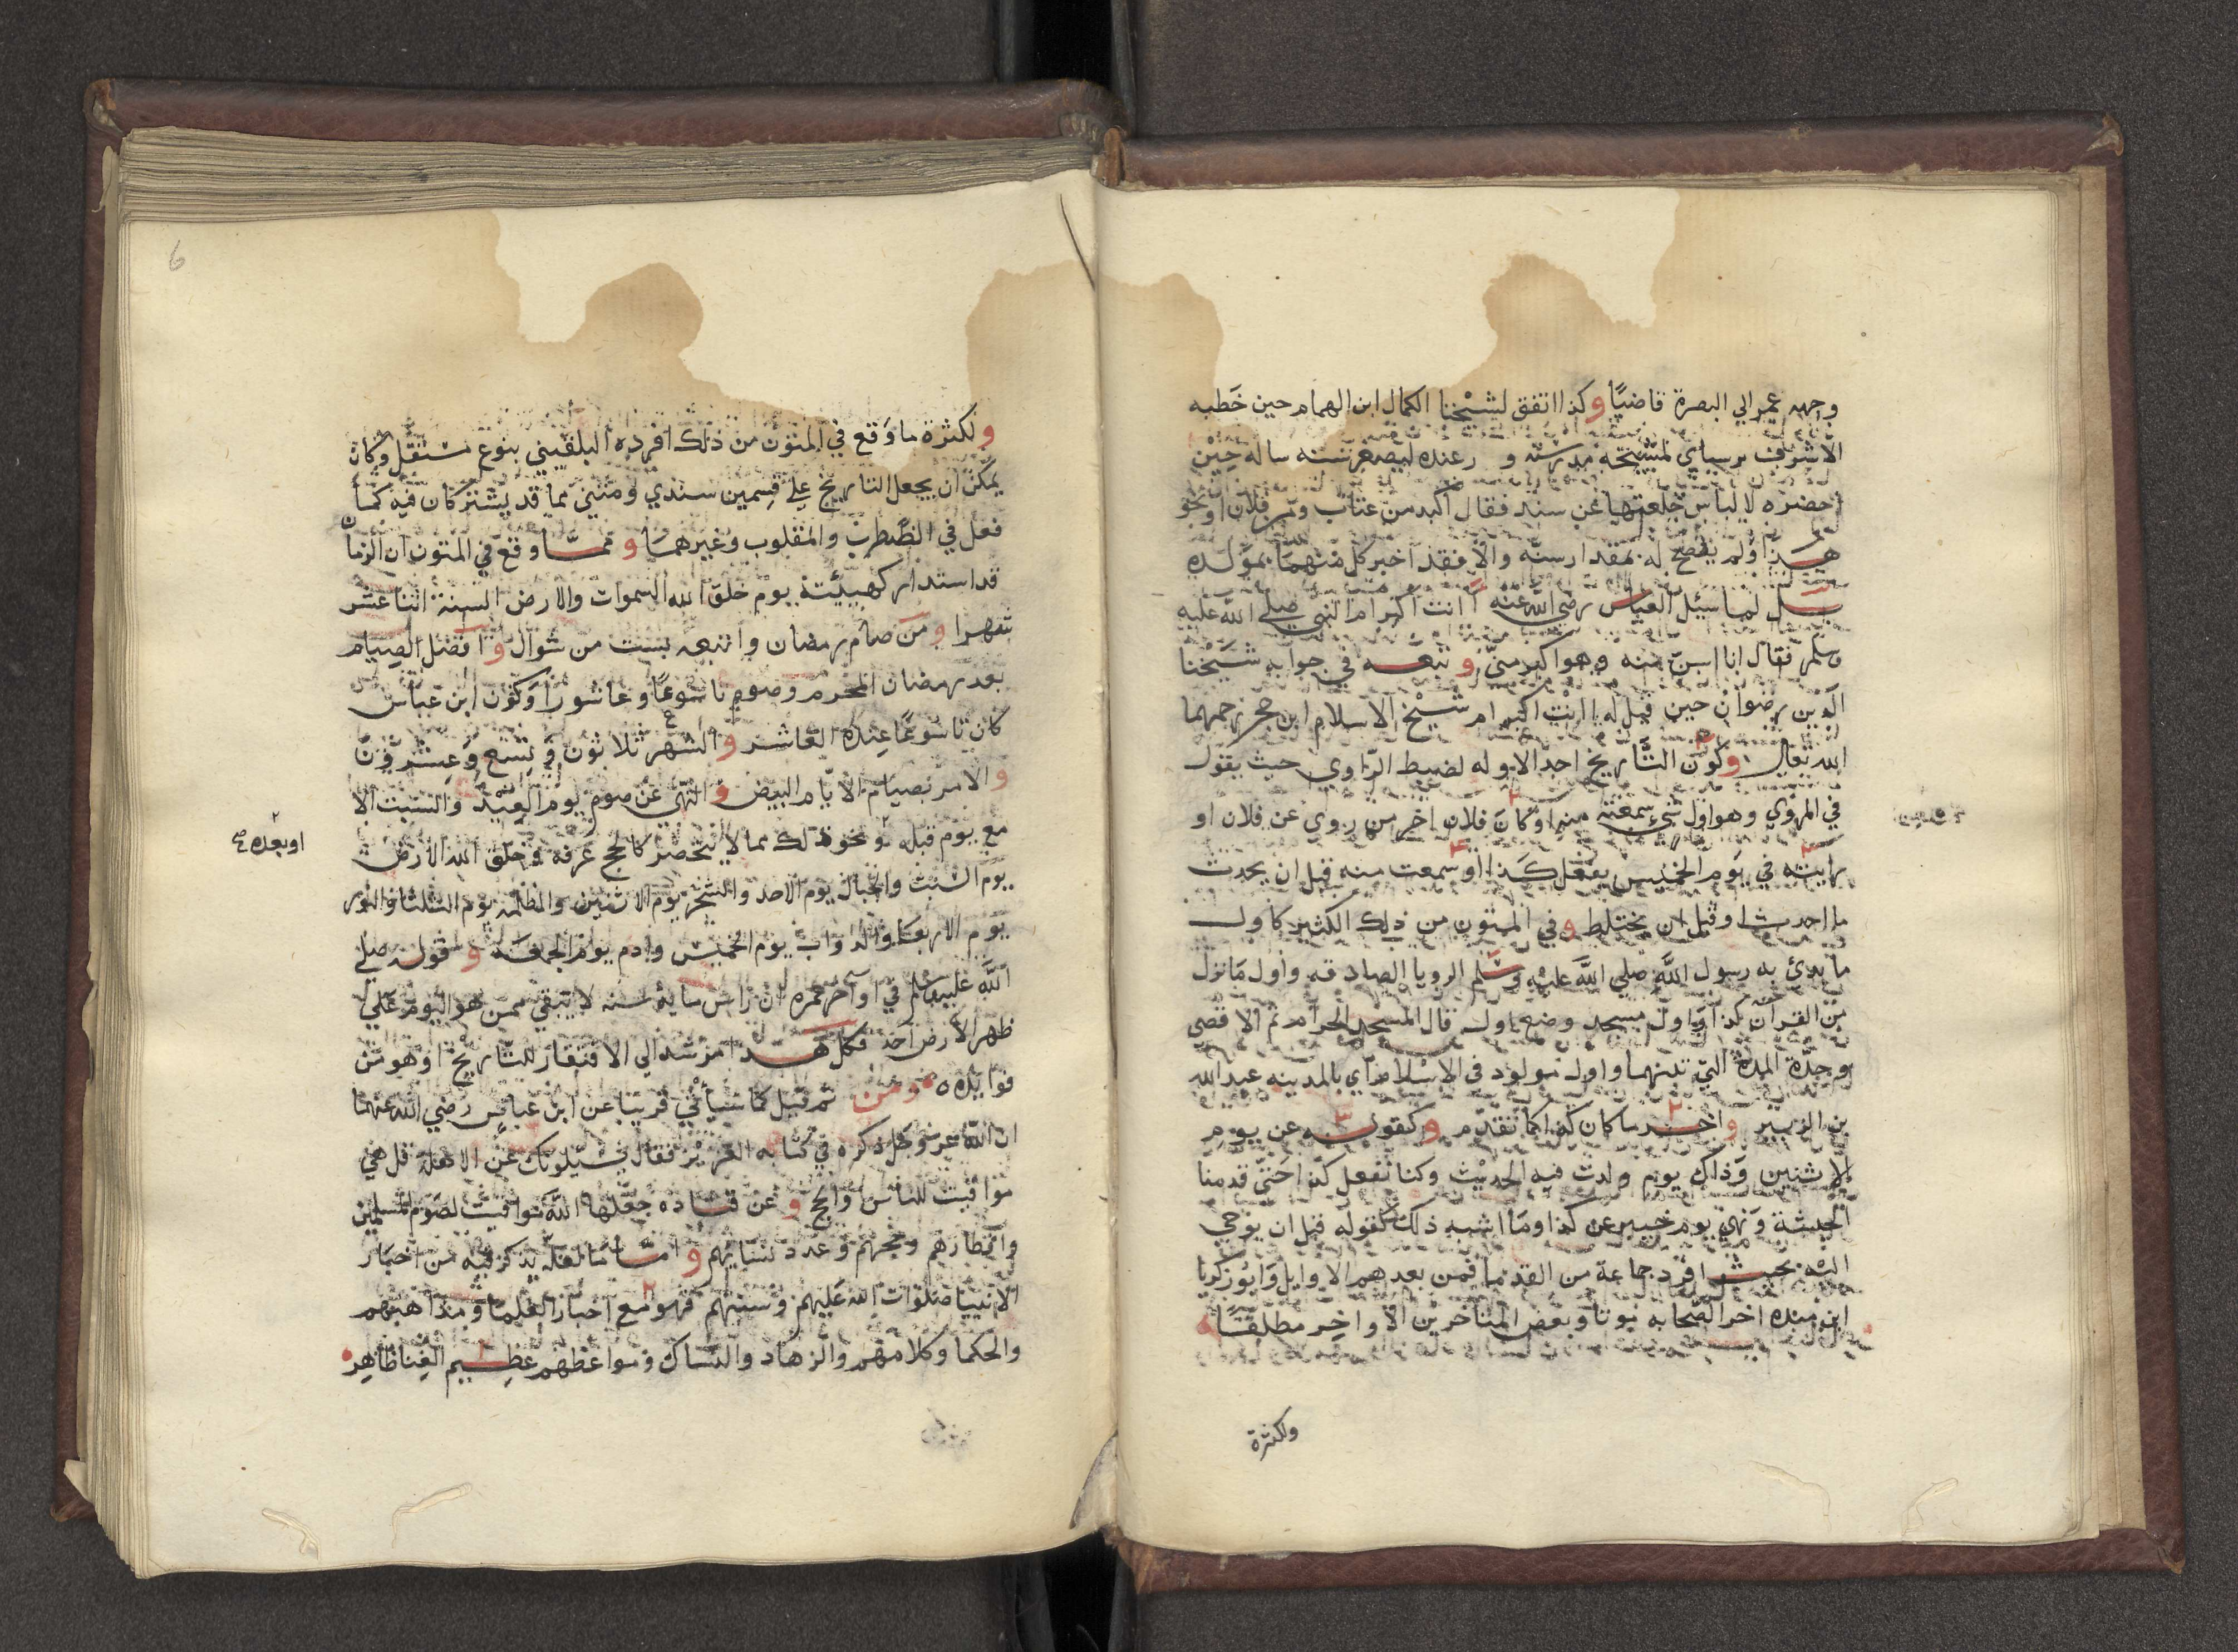 وجهه عمر الي البصرة قاضيًا وكذا اتفق لشيخنا الكمال ابن الهمام حين خطبه
الاشرف برسباي لمشيخة مدرسته و رعنده ليصغر سنه ساله حين
احضره لالباس خلعتها عن سنه فقال اكبر من عتاب وتمر فلان او نحو
هذا ولم يفصح له بمقدار سنه والا فقد اخبر كل منهما بمولده
بل لما سئل العباس رضي الله عنه اانت اكبر ام النبي صلي الله عليه
وسلم فقال انا اسن منه وهو اكبر مني وتبعه في جوابه شيخنا
الزين رضوان حين قيل له اانت اكبر ام شيخ الاسلام ابن حجر رحمهما
الله تعالي وكون التاريخ احد الادله لضبط الراوي حيث يقول
في المروي وهو اول شي سمعته منه او كان فلان اخر من روي عن فلان او
رايته في يوم الخميس يفعل كذا او سمعت منه قبل ان يحدث
ما احدث او قبل ان يختلط وفي المتون من ذلك الكثير كاول
ما بدئ به رسول الله صلي الله عليه وسلم الرويا الصادقه واول ما نزل
من القران كذا واول مسجد وضع اول قال المسجد الحرام ثم الاقصي
وحدة المدة التي بينهما واول مولود في الاسلام اي بالمدينه عبد الله
بن الزبير واخر ما كان كذا كما تقدم وكقوله عن يوم
الاثنين وذاك يوم ولدت فيه الحديث وكنا نفعل كذا حتي قدمنا
الحبشة ونهي يوم خيبر عن كذا وما اشبه ذلك كقوله قبل ان يوحي
اليه بحيث افرد جماعة من القدما فمن بعدهم الاوايل وابو زكريا
ابن منده اخر الصحابه موتا وبعض المتاخرين الاواخر مطلقا
ولكثرة
ولكثرة ما وقع في المتون من ذلك افرده البلقيني بنوع مستقل وكان
يمكن ان يجعل التاريخ علي قسمين سندي ومتني بما قد يشتركان فيه كما
فعل في المضطرب والمقلوب وغيرهما ومما وقع في المتون ان الزمان
قد استدار كهيئته يوم خلق الله السموات والارض السنة اثنا عشر
شهرا ومن صام رمضان واتبعه بست من شوال وافضل الصيام
بعد رمضان المحرم وصوم تاسوعا وعاشورا وكون ابن عباس
كان تاسوعا عنده العاشر والشهر ثلاثون وتسع وعشرون
والامر بصيام الايام البيض والنهي عن صوم يوم العيد والسبت الا
مع يوم قبله ونحو ذلك مما لا ينحصر كالحج عرفه وخلق الله الارض
او بعده
يوم السبت والجبال يوم الاحد والشجر يوم الاثنين والمظلمه يوم الثلثا والنور
يوم الاربعا والدواب يوم الخميس وادم يوم الجمعة وقوله صلي
الله عليه وسلم في اواخر عمره ان راس ماية سنه لا يبقي ممن هو اليوم علي
ظهر الارض احد فكل هذا مرشد الي الافتقار للتاريخ او هو من
فوايده ومن ثم قيل كما سيأتي قريبا عن ابن عباس رضي الله عنهما
ان الله عز وجل ذكره في كتابه العزيز فقال يسئلونك عن الاهلة قل هي
مواقيت للناس والحج وعن قتاده جعلها الله مواقيت لصوم المسلمين
وافطارهم وحجهم وعدد نسايهم واما ما لعله يذكر فيه من اخبار
الانبيا صلوات الله عليهم وسننهم فهو مع اخبار العلما ومذاهبهم
والحكما وكلامهم والزهاد والنساك ومواعظهم عظيم الغنا ظاهر
6